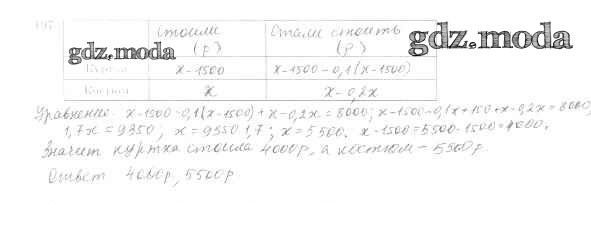 197.
стоили (р) Стали стоить (р)
gdz.moda gdz.moda
Куртка x-1500 x-1500-0,1(x-1500)
Костюм x x-0,2x
Уравнение: x-1500-0,1(x-1500)+x-0,2x=8000; x-1500-0,1x+150+x-0,2x=8000,
1,7x=9350; x=9350:1,7; x=5500. x-1500=5500-1500=4000.
Значит куртка стоила 4000р, а костюм - 5500р.
Ответ 4000р, 5500р